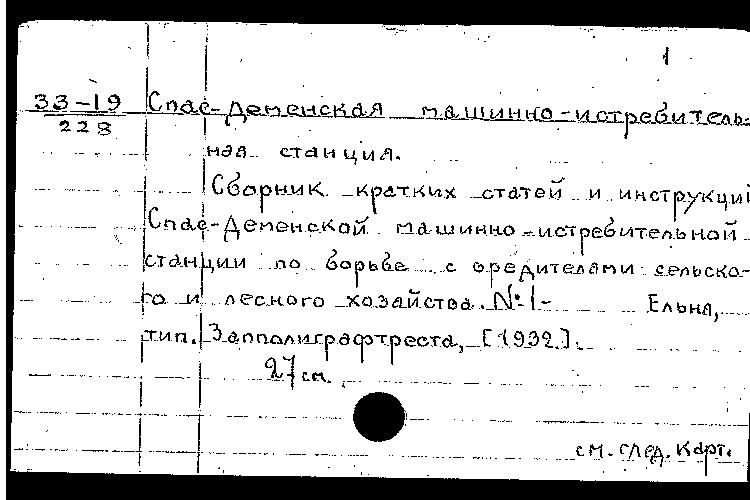 1
33-19 Спас-Деменская машинно-истребитель-
228
ная станция.
Сборник кратких статей и инструкций
Спас-Деменской машинно-истребительной
станции по борьбе с вредителями сельско-
го и лесного хозяйства. №1- Ельня,
тип. Запполиграфтреста, [1932].
27 см.
см. след. карт.